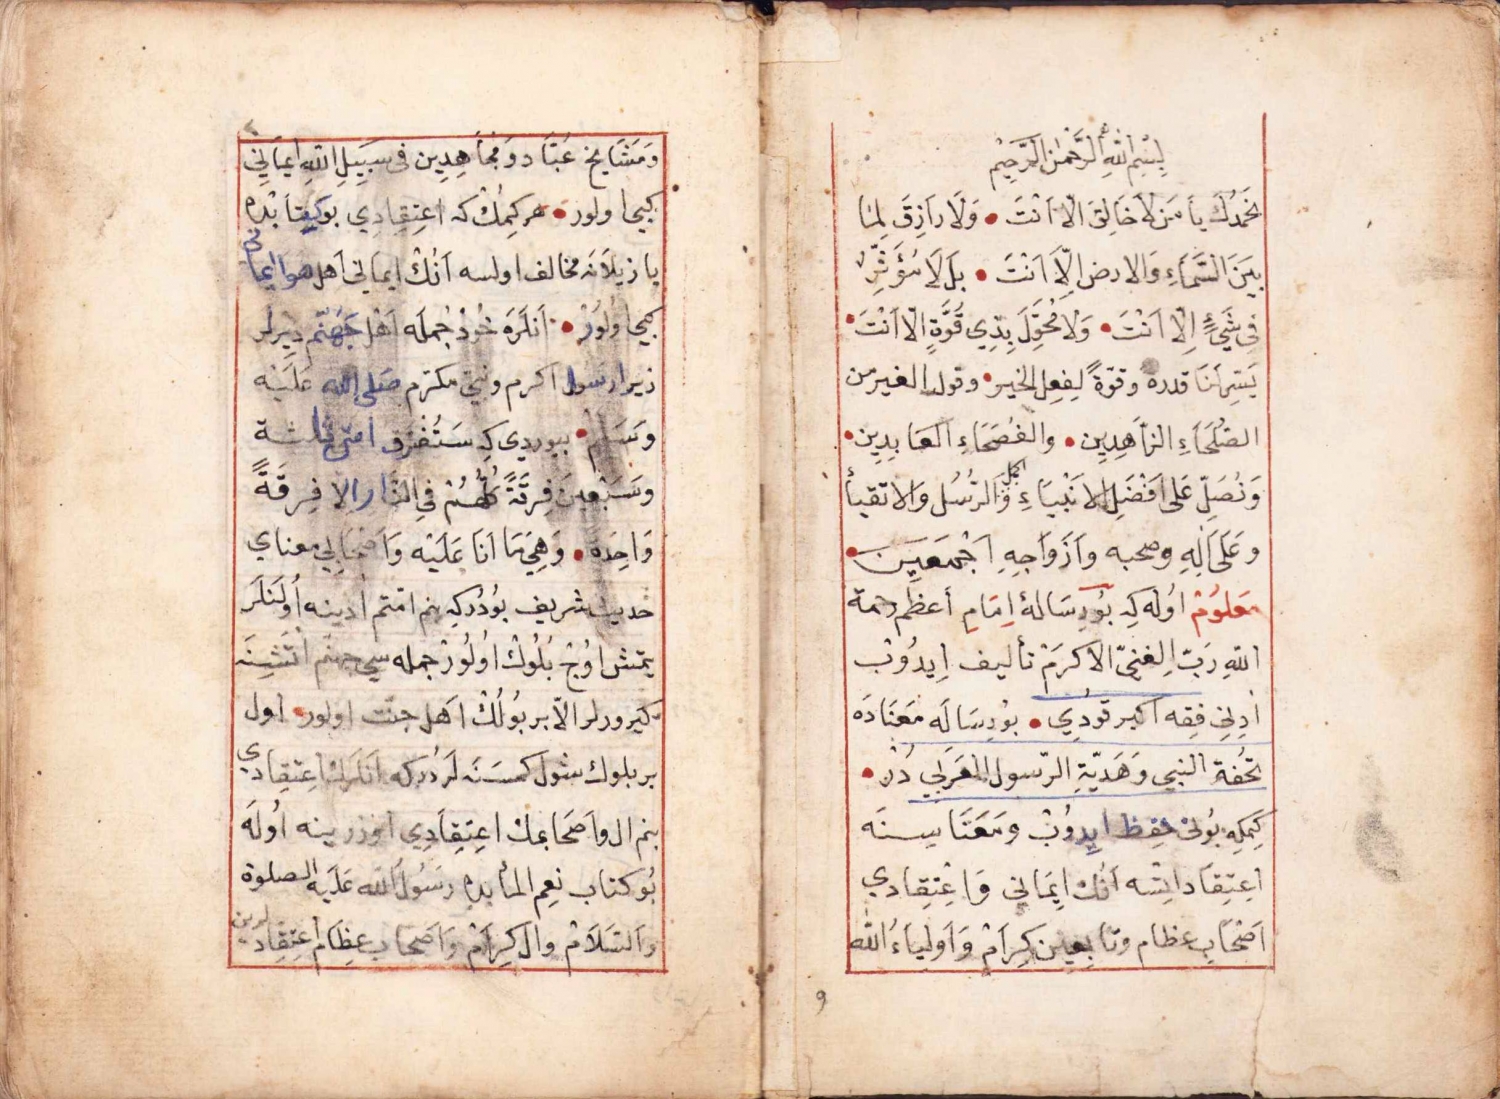 بِسْمِ اللهِ الرَّحْمٰنِ الرَّحِيمِ
نَحْمَدُكَ يَا مَنْ لَا خَالِقَ اِلَّا اَنْتَ • وَلَا رَازِقَ لِمَا
بَيْنَ السَّمَاءِ وَالارضِ اِلَّا اَنْتَ • بَلْ لَا مُؤَثِّرَ
فِي شَيْءٍ اِلَّا اَنْتَ • وَلَا مُحَوِّلَ بِذِي قُوَّةٍ اِلَّا اَنْتَ •
يَسِّرْ لَنَا قدرة وقوّةً لِفِعلِ الخير • وقول الغير من
الصُّلَحَاءِ الزَّاهِدِين • والفُصَحَاءِ العَابِدِين •
وَنُصَلِّي عَلَى اَفْضَلِ الانْبِيَاءِ وَاكمل الرُّسُل وَالاتقيأ
وعَلَى آلِهِ وصحبه وَاَزْوَاجِهِ اَجْمَعِين •
مَعلُومْ اُولَه كِه بُو رِسَالهٔ اِمَامِ أعظم رحمة
اللهِ رَبِّ الغَنِيّ الاكرَمْ تأليف ايدُوبْ
اَدِنِي فِقهِ اَكبر قودِي • بُو رِسَالَه مَعَنَادَه
تُحْفَةِ النَّبِي وَهَدِيّةِ الرّسولِ العَرَبِي دُرْ •
كِمكِه بُونِي حِفِظ ايدُوبْ ومَعَنَا سِنَه
اِعتِقَاد اِيتسَه اَنُكْ اِيمَانِي وَاِعْتِقِادِي
اَصْحَابِ عظام وتَابِعِين كِرَامْ وَاَولِيَاءُ اللّه
وَمَشَايِخ عُبَّاد وَمُجَاهِدِين فِي سَبِيلِ اللهِ ايمَانِي
كبي اولور • هر كِمُكْ كه اعتِقِادِي بو كِتَابْدَه
يازيلانه مخالف اولسه اَنُكْ ايمَاني اَهلِ هوا ايمانى
كبي اُولُورْ • اَنلَرَه خُودْ جُملَه اَهْلِ جَهَنَّم دِيرلر
زيرا رسول اكرم ونبيّ مكرّم صَلى الله عَلَيْهِ
وسَلم • بيوردي كِه سَتُفْرَق اُمّتي ثلثة
وسَبْعِينَ فِرقَةً كُلُّهُمْ فِي النَّار الا فِرقَةً
وَاحِدَة • وَهِيَ مَا اَنَا عَلَيْهِ وَاَصْحَابِي معناي
حديث شريف بُودُر كِه بنم اُمّتم اَدِينه اُولَنلَر
يتمش اوُچْ بُلُوكْ اُولُورْ جمله سي جهنّم اَتَشِنَه
كيرورلر الّا بر بُولُكْ اهل جنّت اولور • اول
بر بلوك شول كمسَنَه لَردُركه اَنلَرك اعتِقِادِي
بنم ال واَصْحَابمك اعتِقِادِي اوزرينه اُولَه
بُو كتاب نعِم المأبده رسُول الله عَلَيهِ الصلوة
وَالسَّلَامْ وال كِرَامْ وَاَصْحَابِ عِظَامْ اِعتِقَادلرين
9